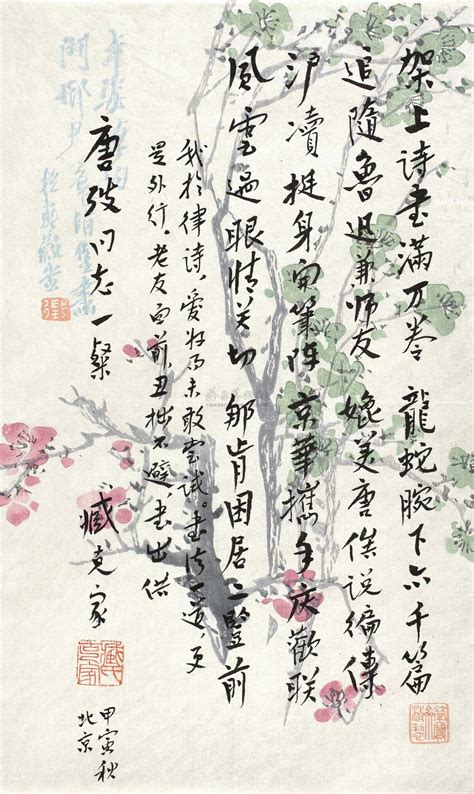 架上诗书满万卷 龍蛇腕下亦千篇
追随魯迅兼师友 媲美唐俟说编傳
沪渎挺身開笔阵 京華携手庆歡联
風雲過眼情关切 那肯困居二竪前
我於律诗，爱好而未敢尝试。书法一道，更
是外行。老友面前，丑拙不避，书出供
唐弢同志一粲
臧克家
甲寅秋
北京